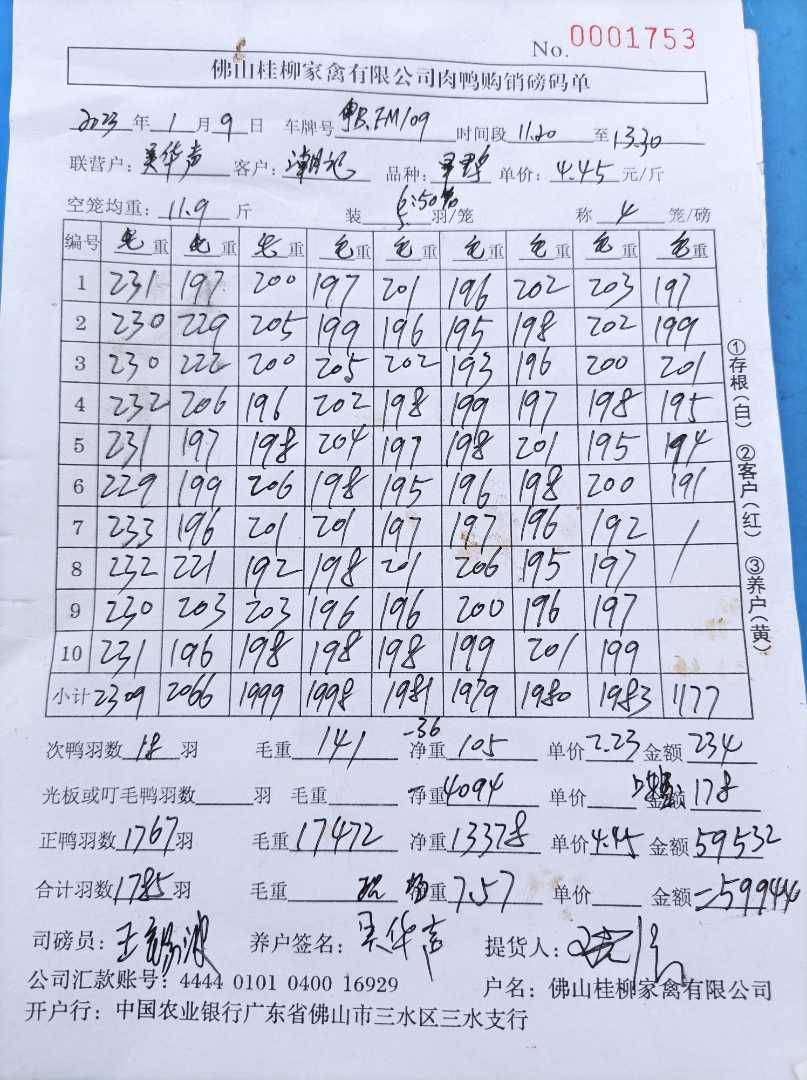 No. 0001753
佛山桂柳家禽有限公司肉鸭购销磅码单
2023年1月9日 车牌号粤B.FM109 时间段11.20至13.30
联营户：吴华声 客户：潮记 品种： 单价：4.45元/斤
空笼均重：11.9斤 装 羽/笼 称4笼/磅
编号 毛重 毛重 毛重 毛重 毛重 毛重 毛重 毛重 毛重
1 231 197 200 197 201 196 202 203 197
2 230 229 205 199 196 195 198 202 199
3 230 222 200 205 202 193 196 200 201
4 232 206 196 202 198 199 197 198 195
5 231 197 198 204 197 198 201 195 194
6 229 199 206 198 195 196 198 200 191
7 233 196 201 201 197 197 196 192 /
8 232 221 192 198 201 206 195 197 /
9 230 203 203 196 196 200 196 197
10 231 196 198 198 198 199 201 199
小计 2309 2066 1999 1998 1981 1979 1980 1983 1177
①存根(白) ②客户(红) ③养户(黄)
-36
次鸭羽数18羽 毛重141 净重105 单价2.23 金额234
光板或叮毛鸭羽数 羽 毛重 净重4094 单价 金额178
正鸭羽数1767羽 毛重17472 净重13378 单价4.45 金额59532
合计羽数1785羽 毛重 净重7.57 单价 金额=59944
司磅员： 养户签名：吴华声 提货人：
公司汇款账号：4444 0101 0400 16929 户名：佛山桂柳家禽有限公司
开户行：中国农业银行广东省佛山市三水区三水支行